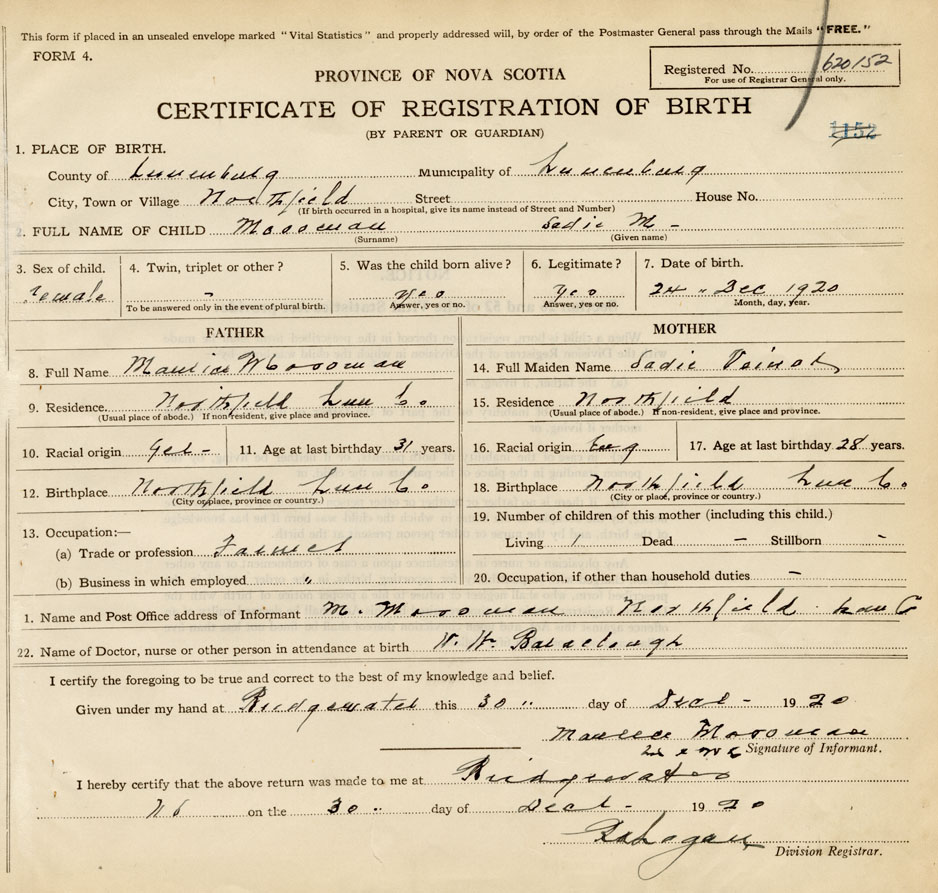 This form if placed in an unsealed envelope marked "Vital Statistics" and properly addressed will, by order of the Postmaster General pass through the Mails "FREE."
FORM 4.
Registered No. 620152
For use of Registrar General only.
PROVINCE OF NOVA SCOTIA
CERTIFICATE OF REGISTRATION OF BIRTH
(BY PARENT OR GUARDIAN)
1152
1. PLACE OF BIRTH.
County of Lunenburg Municipality of Lunenburg
City, Town or Village Northfield Street House No.
(If birth occurred in a hospital, give its name instead of Street and Number)
2. FULL NAME OF CHILD Mossman Sadie M -
(Surname) (Given name)
3. Sex of child. 4. Twin, triplet or other? 5. Was the child born alive? 6. Legitimate? 7. Date of birth.
Female - yes yes 24 " Dec 1920
To be answered only in the event of plural birth. Answer, yes or no. Answer, yes or no. Month, day, year.
FATHER MOTHER
8. Full Name Maurice Mossman 14. Full Maiden Name Sadie Veinot
9. Residence Northfield Lun Co. 15. Residence Northfield
(Usual place of abode.) If non-resident, give place and province. (Usual place of abode.) If non-resident, give place and province.
10. Racial origin Ger - 11. Age at last birthday 31 years. 16. Racial origin Eng 17. Age at last birthday 28 years.
12. Birthplace Northfield Lun Co. 18. Birthplace Northfield Lun Co.
(City or place, province or country.) (City or place, province or country.)
13. Occupation:— 19. Number of children of this mother (including this child.)
(a) Trade or profession Farmer Living 1 Dead — Stillborn -
(b) Business in which employed " 20. Occupation, if other than household duties —
1. Name and Post Office address of Informant M. Mossman Northfield Lun C
22. Name of Doctor, nurse or other person in attendance at birth W. H. Baraclough
I certify the foregoing to be true and correct to the best of my knowledge and belief.
Given under my hand at Bridgewater this 30 " day of Dect - 1920
Maurice Mossman
Signature of Informant.
I hereby certify that the above return was made to me at Bridgewater
NS on the 30 " day of Dect - 1920
Division Registrar.